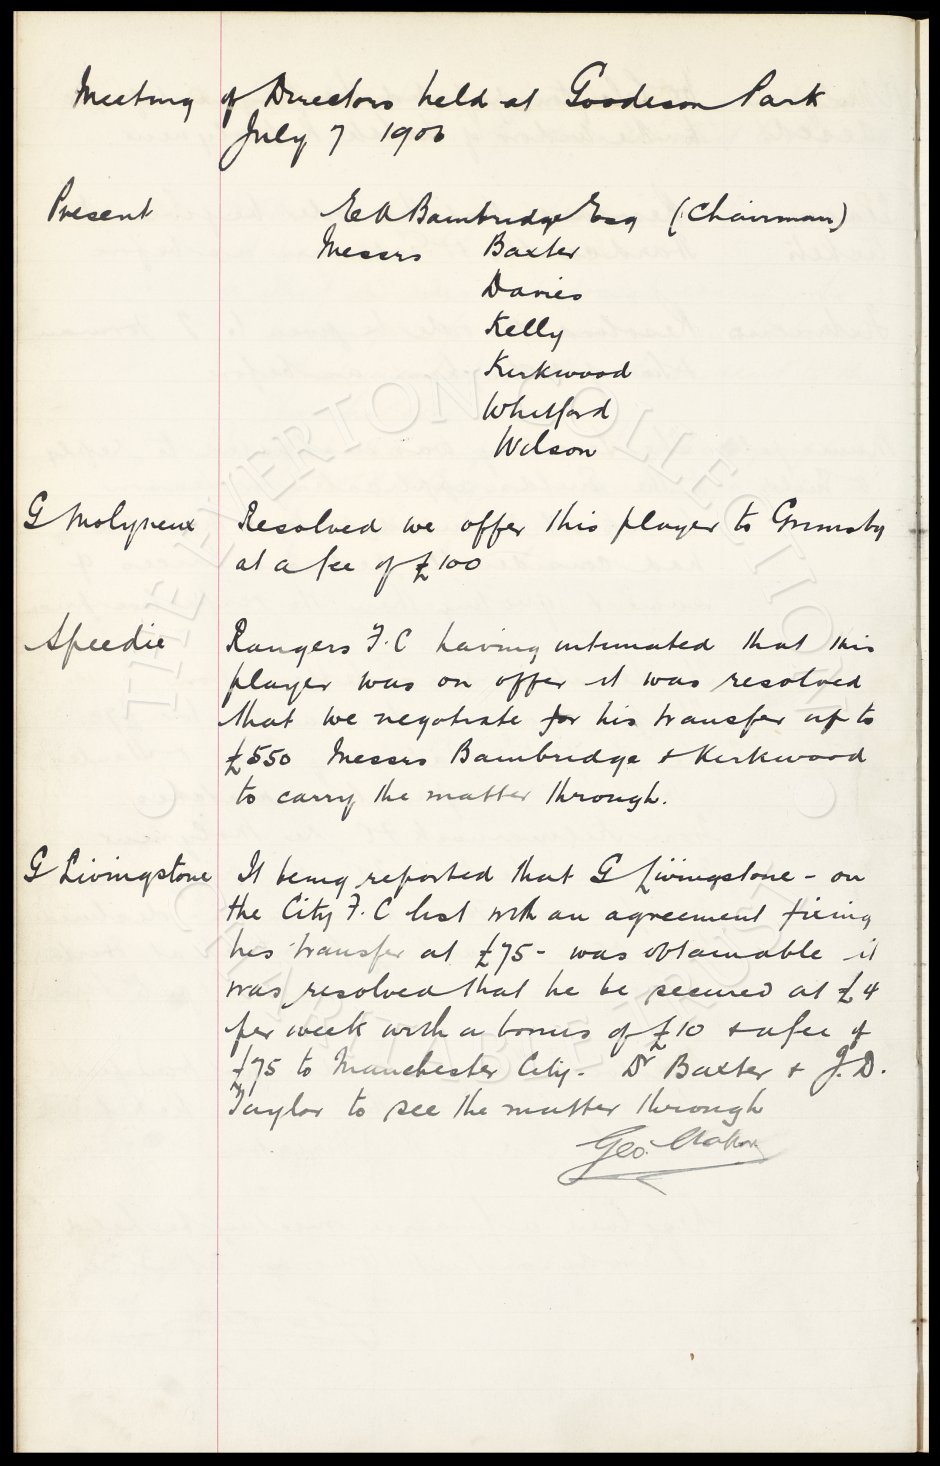 Meeting of Directors held at Goodison Park
July 7 1906
Present E A Bainbridge Esq (Chairman)
Messrs Baxter
Davies
Kelly
Kirkwood
Whitford
Wilson
G Molyneux Resolved we offer this player to Grimsby
at a fee of £100
Speedie Rangers F.C having intimated that this
player was on offer it was resolved
that we negotiate for his transfer up to
£550 Messrs Bainbridge & Kirkwood
to carry the matter through.
G Livingstone It being reported that G Livingstone - on
the City F.C list with an agreement fixing
his transfer at £75 - was obtainable it
was resolved that he be secured at £4
per week with a bonus of £10 & a fee of
£75 to Manchester City - Dr Baxter & J.D.
Taylor to see the matter through
Geo.
THE EVERTON COLLECTION
CHARITABLE TRUST